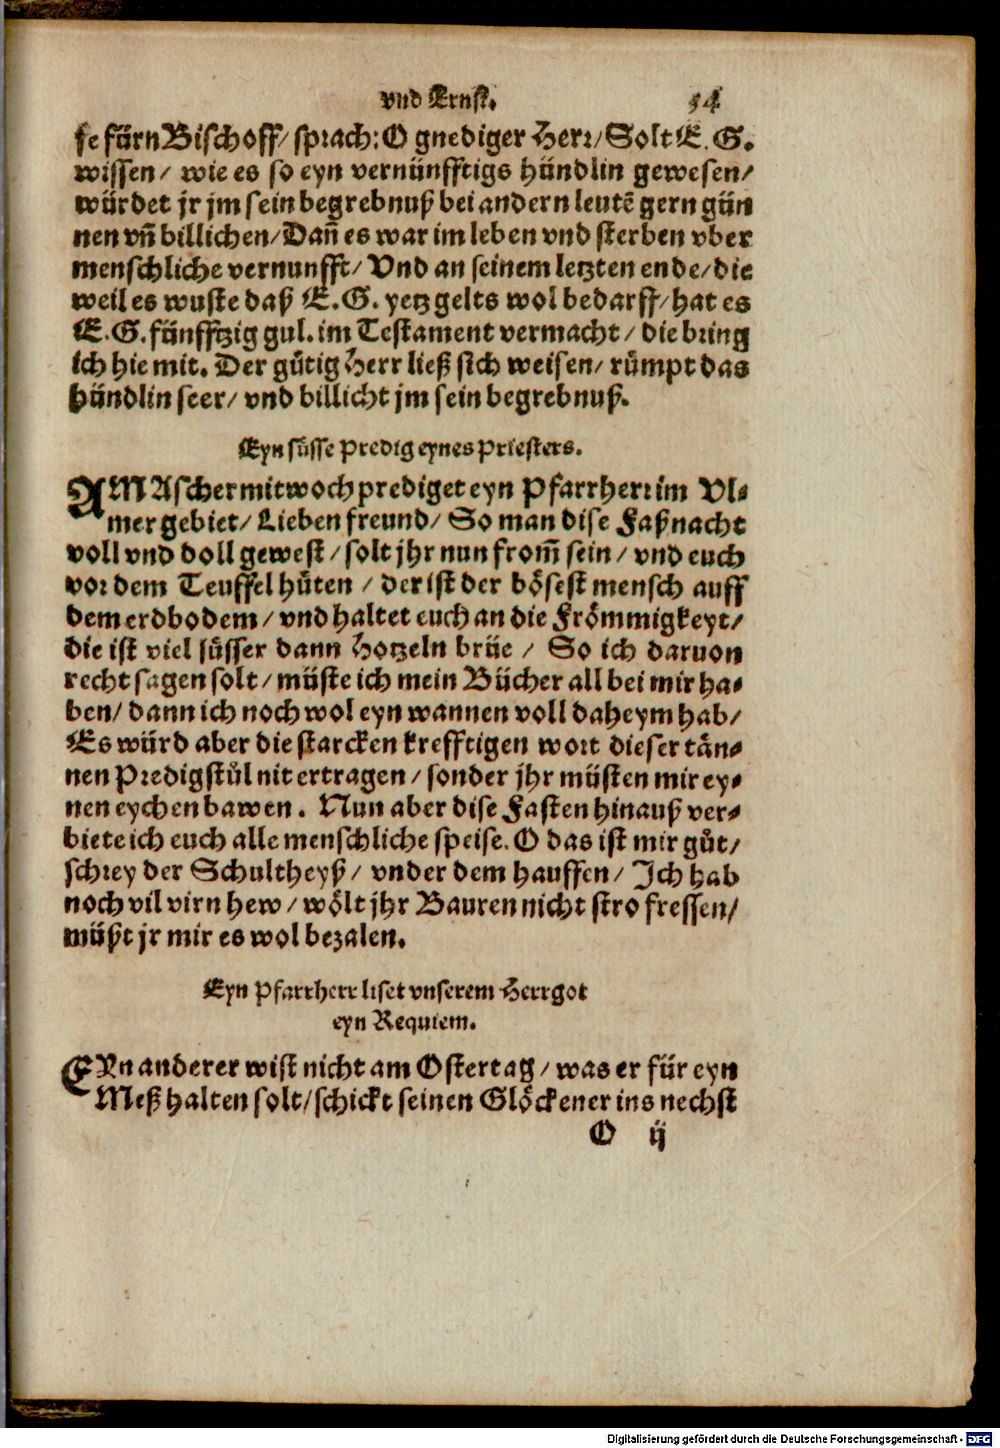 vnd Ernst. 54
se fürn Bischoff/ sprach: O gnediger Herr/ Solt E. G.
wissen/ wie es so eyn vernünfftigs hündlin gewesen/
würdet jr jm sein begrebnuß bei andern leutē gern gün
nen vñ billichen/ Dañ es war im leben vnd sterben vber
menschliche vernunfft/ Vnd an seinem letzten ende/ die
weil es wuste daß E. G. yetz gelts wol bedarff/ hat es
E. G. fünfftzig gul. im Testament vermacht/ die bring
ich hie mit. Der gütig Herr ließ sich weisen/ rümpt das
hündlin seer/ vnd billicht jm sein begrebnuß.
Eyn süsse Predig eynes Priesters.
AM Aschermitwoch prediget eyn Pfarrherr im Vl-
mer gebiet/ Lieben freund/ So man dise Faßnacht
voll vnd doll gewest/ solt jhr nun from̃ sein/ vnd euch
vor dem Teuffel hüten/ der ist der bösest mensch auff
dem erdbodem/ vnd haltet euch an die Frömmigkeyt/
die ist viel süsser dann Hotzeln brüe/ So ich daruon
recht sagen solt/ müste ich mein Bücher all bei mir ha-
ben/ dann ich noch wol eyn wannen voll daheym hab/
Es würd aber die starcken krefftigen wort dieser tän-
nen Predigstůl nit ertragen/ sonder jhr müsten mir ey-
nen eychen bawen. Nun aber dise Fasten hinauß ver-
biete ich euch alle menschliche speise. O das ist mir gůt/
schrey der Schultheyß/ vnder dem hauffen/ Ich hab
noch vil virn hew/ wölt jhr Bauren nicht stro fressen/
müßt jr mir es wol bezalen.
Eyn Pfarrherr liset vnserem Herrgot
eyn Requiem.
EYn anderer wist nicht am Ostertag/ was er für eyn
Meß halten solt/ schickt seinen Glöckener ins nechst
O ij
Digitalisierung gefördert durch die Deutsche Forschungsgemeinschaft - DFG